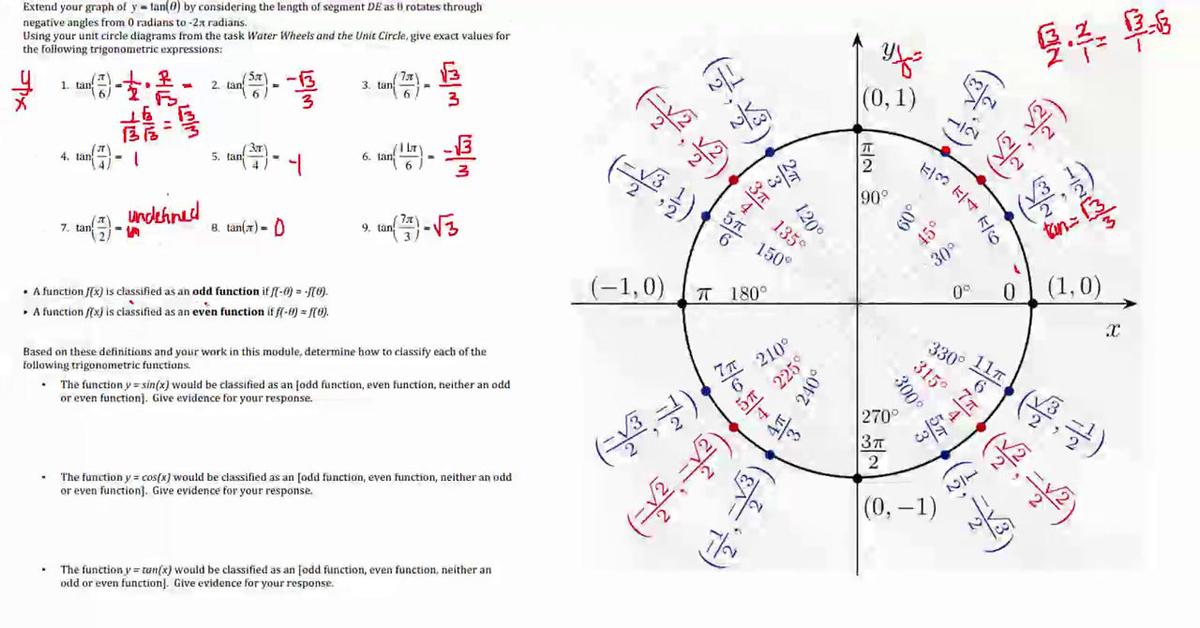 Extend your graph of y = tan(θ) by considering the length of segment DE as θ rotates through
negative angles from 0 radians to -2π radians.
Using your unit circle diagrams from the task Water Wheels and the Unit Circle, give exact values for
the following trigonometric expressions:
y/x
1. tan(π/6) = 1/2 · 2/√3 =
1/√3 √3/√3 = √3/3
2. tan(5π/6) = -√3/3
3. tan(7π/6) = √3/3
4. tan(π/4) = 1
5. tan(3π/4) = -1
6. tan(11π/6) = -√3/3
7. tan(π/2) = undefined
8. tan(π) = 0
9. tan(7π/3) = √3
• A function f(x) is classified as an odd function if f(-θ) = -f(θ).
• A function f(x) is classified as an even function if f(-θ) = f(θ).
Based on these definitions and your work in this module, determine how to classify each of the
following trigonometric functions.
• The function y = sin(x) would be classified as an [odd function, even function, neither an odd
or even function]. Give evidence for your response.
• The function y = cos(x) would be classified as an [odd function, even function, neither an odd
or even function]. Give evidence for your response.
• The function y = tan(x) would be classified as an [odd function, even function, neither an
odd or even function]. Give evidence for your response.
√3/2 · 2/1 = √3/1 = √3
y 1/0 =
(0, 1)
(-1/2, √3/2)
(1/2, √3/2)
(-√2/2, √2/2)
(√2/2, √2/2)
(-√3/2, 1/2)
(√3/2, 1/2)
tan = √3/3
π/2
90°
2π/3 120°
3π/4 135°
5π/6 150°
π/3 60°
π/4 45°
π/6 30°
(-1, 0) π 180°
0° 0 (1, 0)
x
7π/6 210°
5π/4 225°
4π/3 240°
330° 11π/6
315° 7π/4
300° 5π/3
270°
3π/2
(-√3/2, -1/2)
(√3/2, -1/2)
(-√2/2, -√2/2)
(√2/2, -√2/2)
(-1/2, -√3/2)
(1/2, -√3/2)
(0, -1)